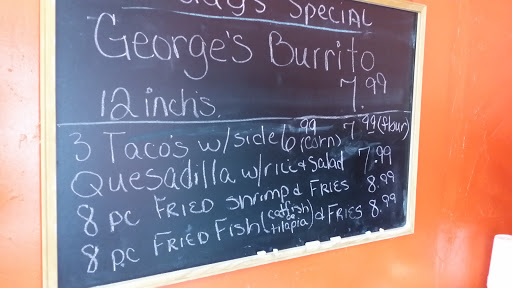 Special
George's Burrito
7.99
12 inch's.
3 Taco's w/side 6.99 (corn) 7.99 (flour)
Quesadilla w/rice & Salad 7.99
8 pc Fried Shrimp & Fries 8.99
8 pc Fried Fish (catfish & tilapia) & Fries 8.99